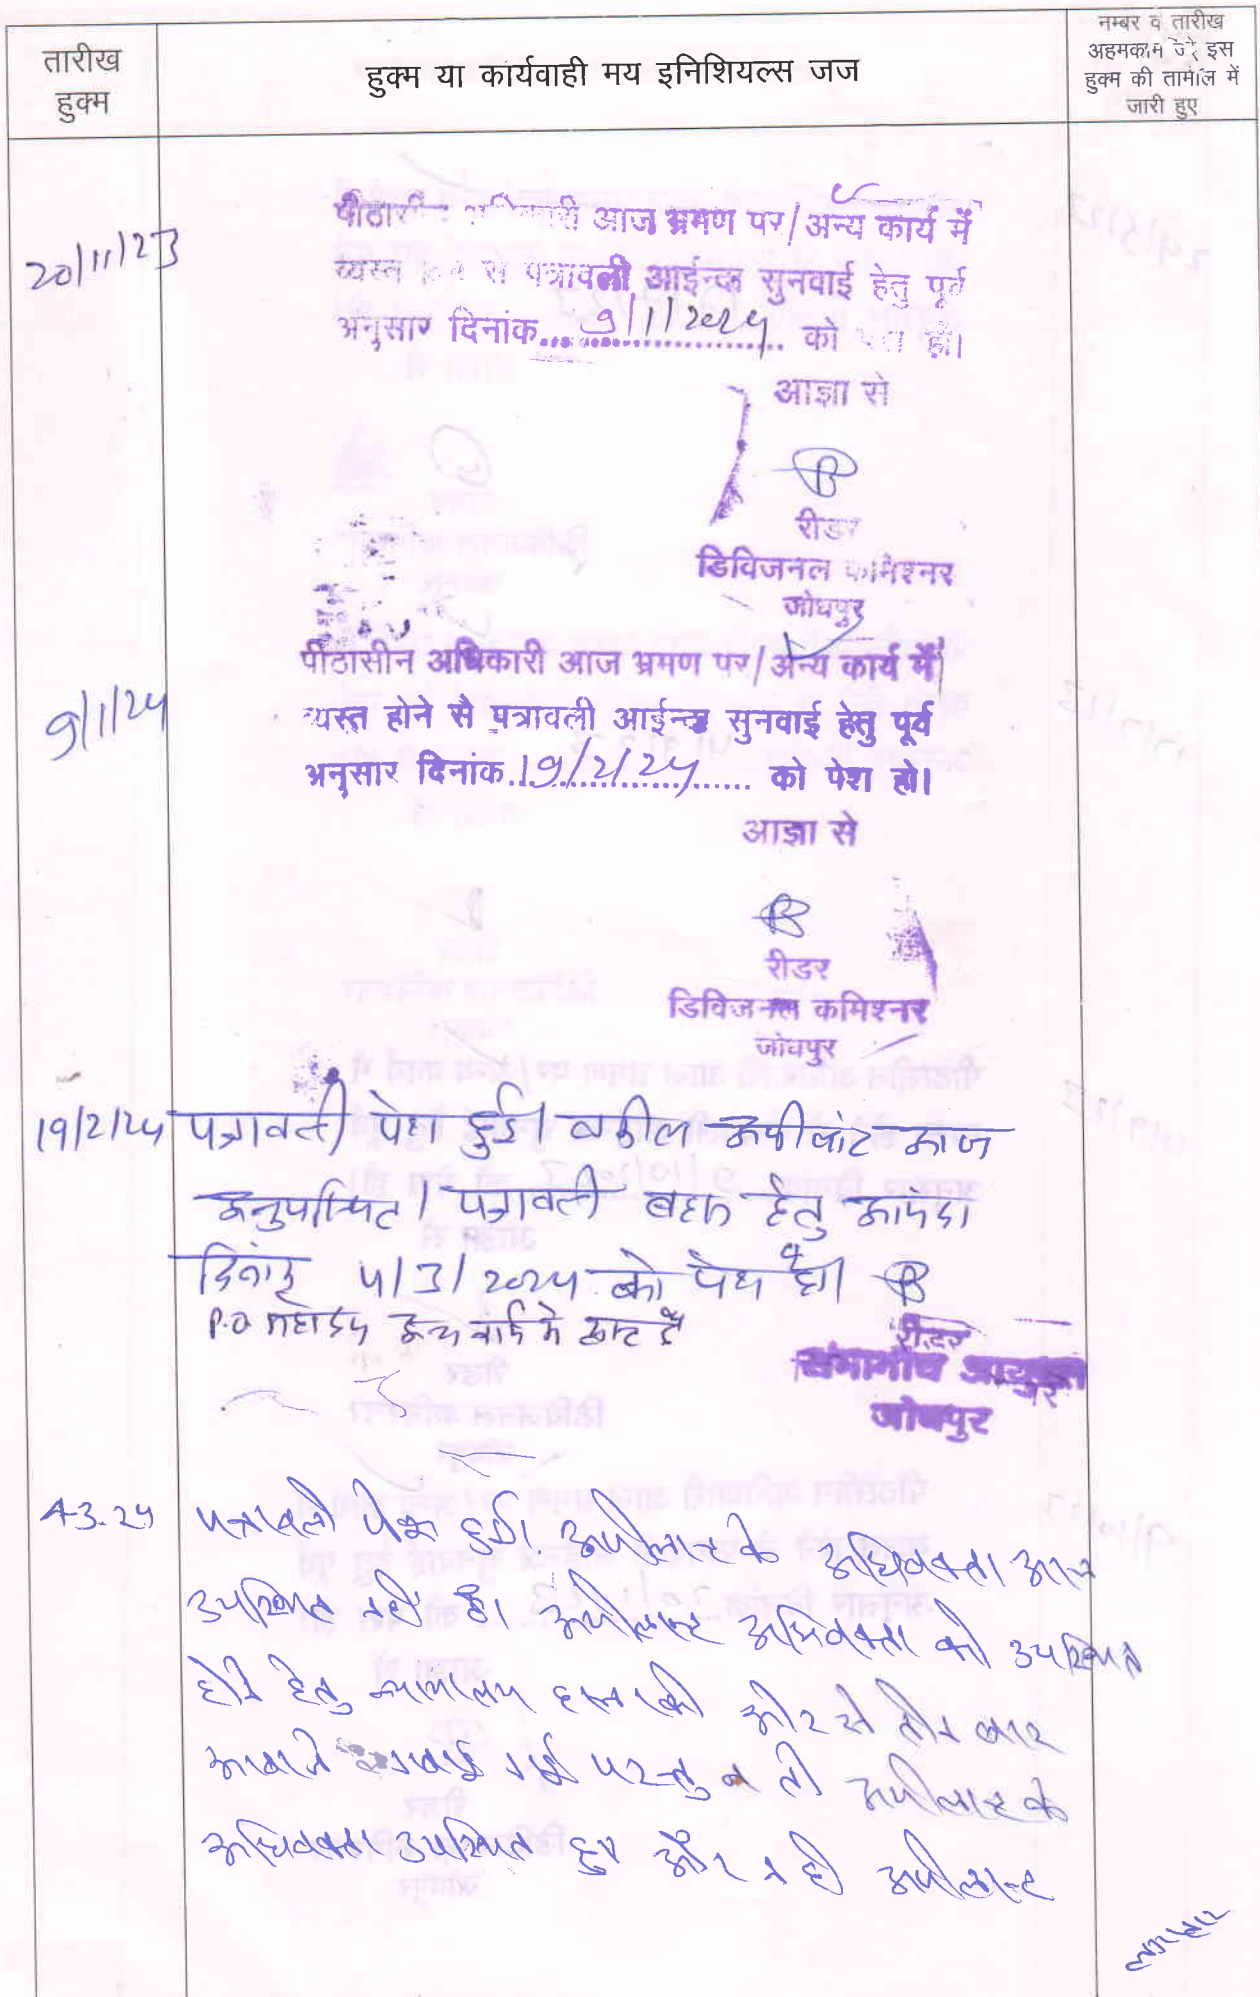 तारीख
हुक्म
हुक्म या कार्यवाही मय इनिशियल्स जज
नम्बर व तारीख
अहमकाम जो इस
हुक्म की तामील में
जारी हुए
20/11/23
पीठासीन अधिकारी आज भ्रमण पर/अन्य कार्य में
व्यस्त होने से पत्रावली आईन्दा सुनवाई हेतु पूर्व
अनुसार दिनांक....9/1/2024.... को पेश हो।
आज्ञा से
रीडर
डिविजनल कमिश्नर
जोधपुर
9/1/24
पीठासीन अधिकारी आज भ्रमण पर/अन्य कार्य में
व्यस्त होने से पत्रावली आईन्दा सुनवाई हेतु पूर्व
अनुसार दिनांक..19/2/24...... को पेश हो।
आज्ञा से
रीडर
डिविजनल कमिश्नर
जोधपुर
19/2/24 पत्रावली पेश हुई। वकील अपीलांट आज
अनुपस्थित। पत्रावली बहस हेतु आईंदा
दिनांक 4/3/2024 को पेश हो।
P.O महोदय अन्य कार्य में व्यस्त है
रीडर
संभागीय आयुक्त
जोधपुर
4-3-24 पत्रावली पेश हुई। अपीलान्ट के अधिवक्ता आज
उपस्थित नहीं है। अपीलान्ट अधिवक्ता को उपस्थित
होने हेतु न्यायालय हाजा की ओर से तीन बार
आवाजे लगवाई गई परन्तु न तो अपीलान्ट के
अधिवक्ता उपस्थित हुए और न ही अपीलान्ट